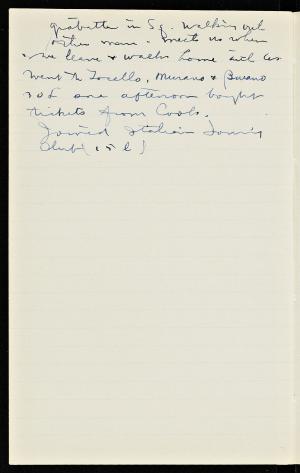 in Sq. Walking
other man. meets us when
we leave & walks home with us
Went to Torcello, Murano & Burano
one afternoon bought
tickets from Cooks.
Joined Italian Touring
Club (15 l)